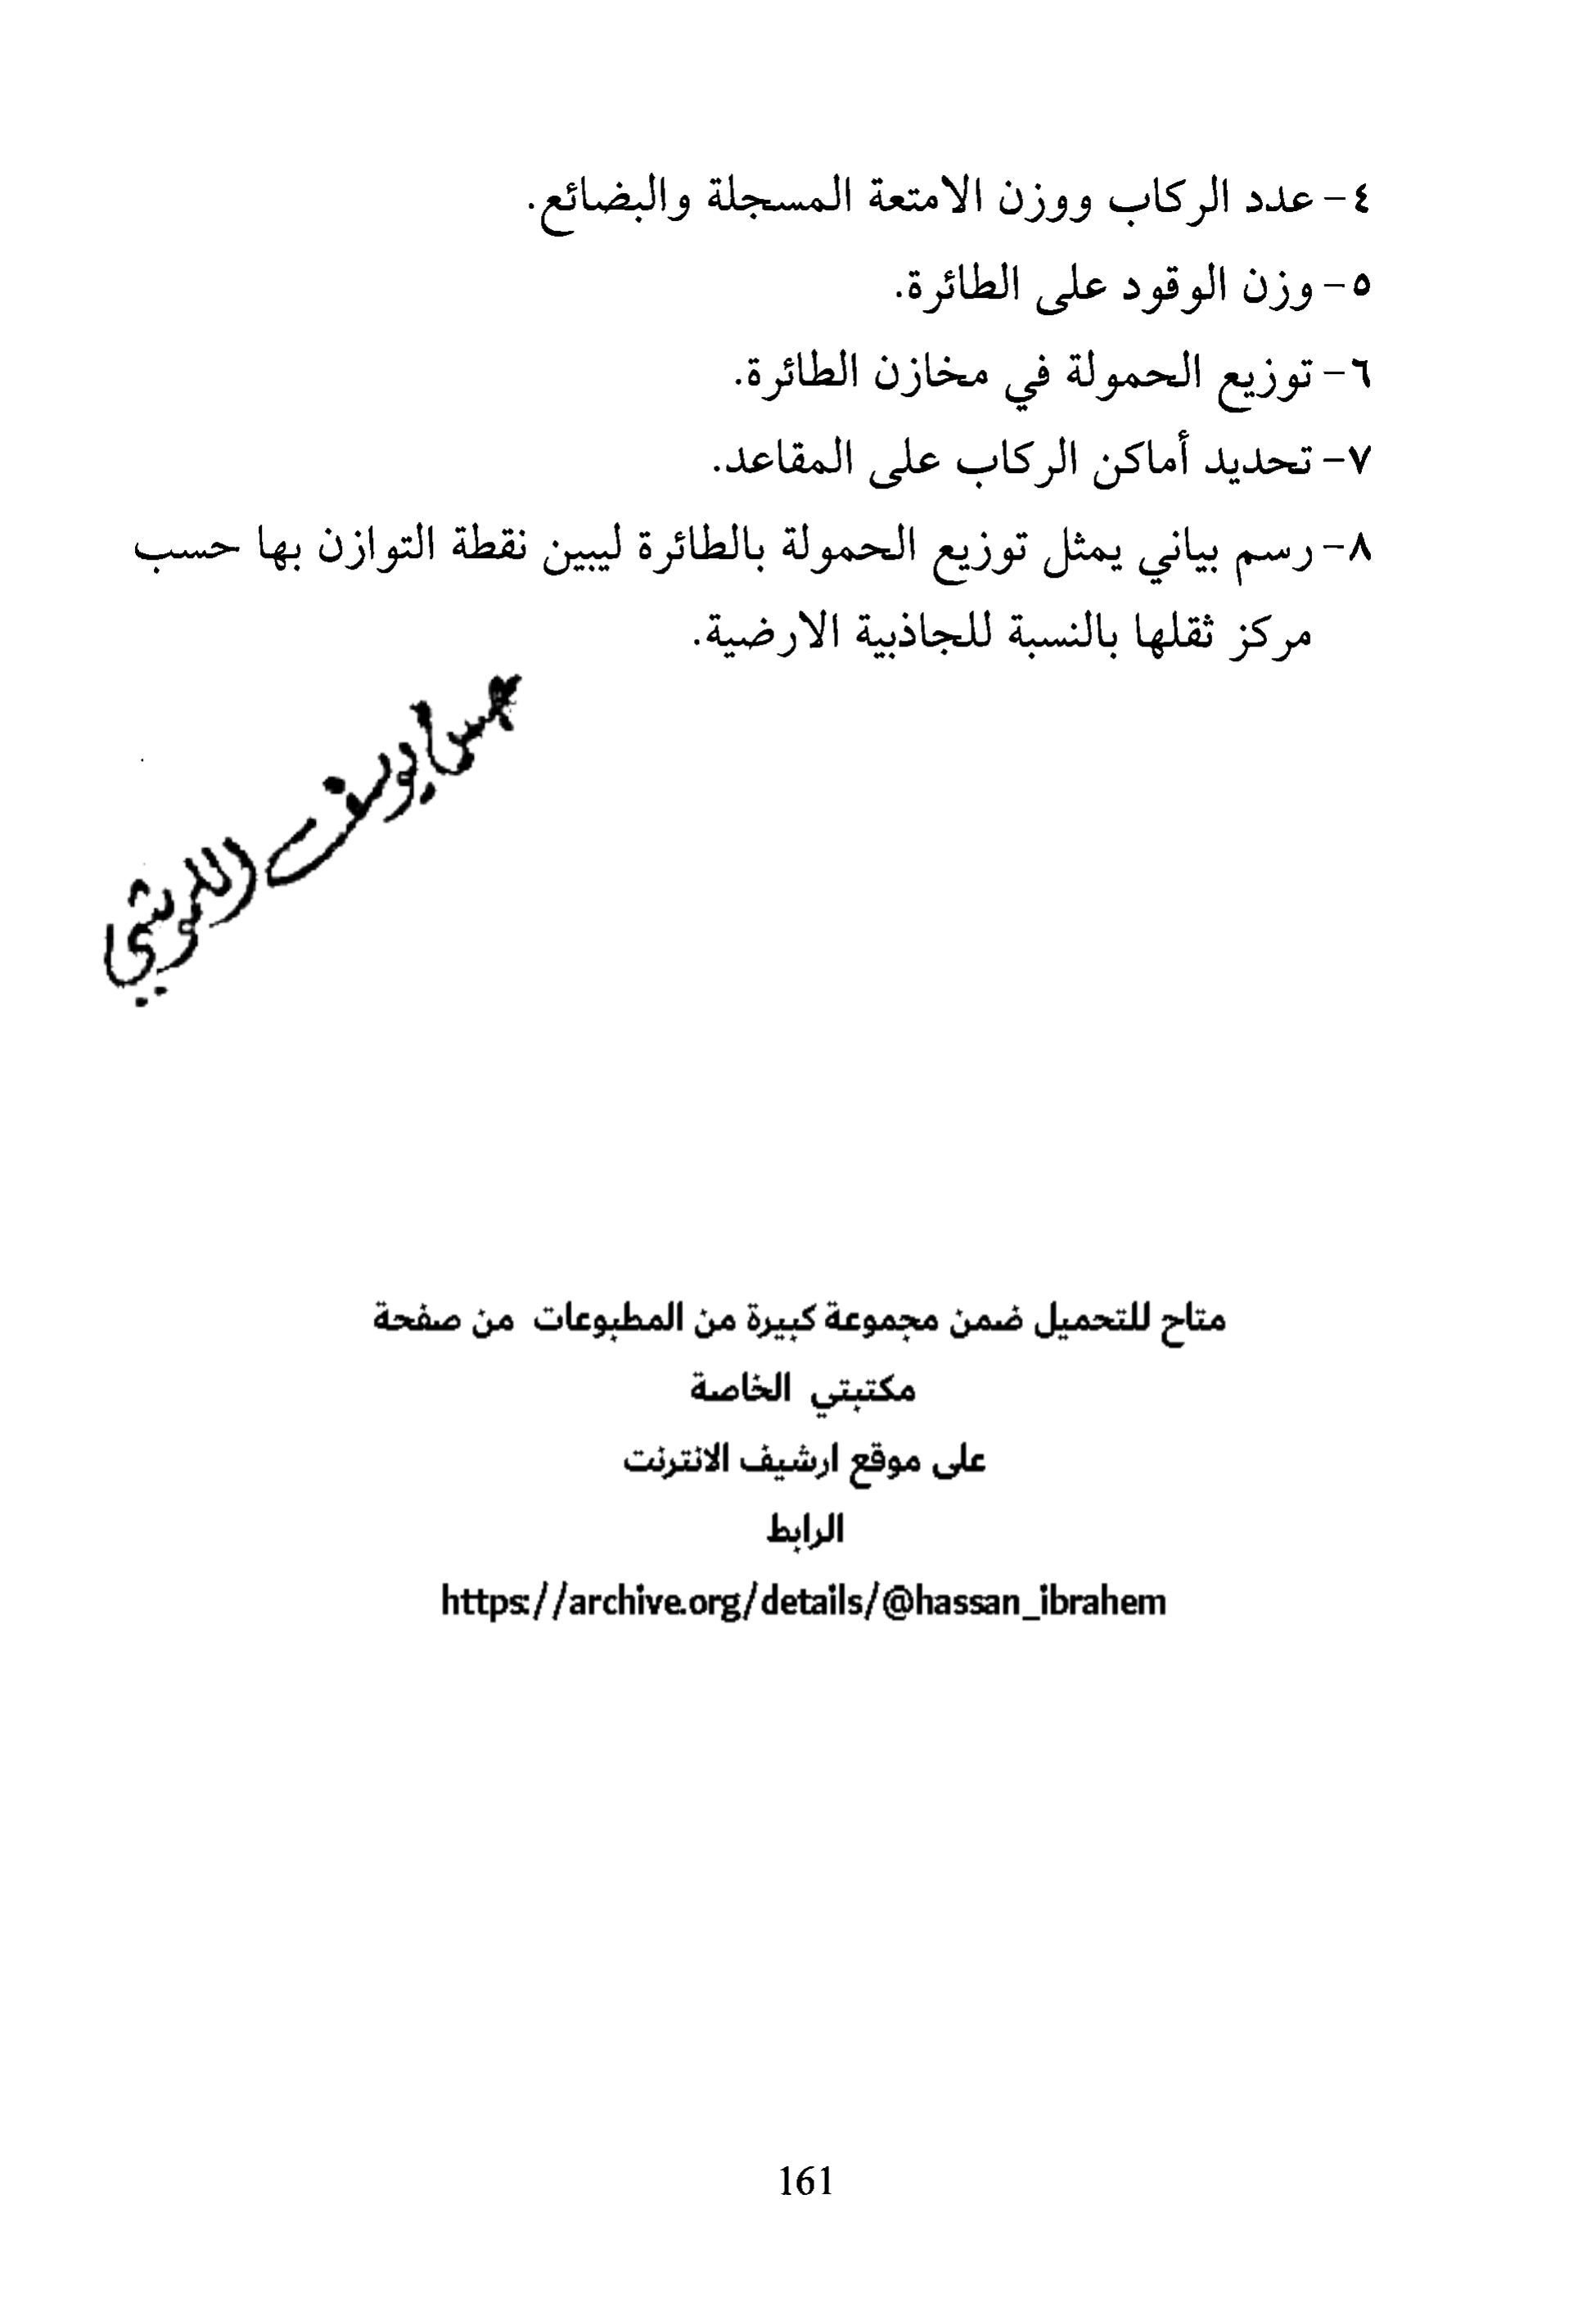 ٤- عدد الركاب ووزن الامتعة المسجلة والبضائع.
٥- وزن الوقود على الطائرة.
٦- توزيع الحمولة في مخازن الطائرة.
٧- تحديد أماكن الركاب على المقاعد.
٨- رسم بياني يمثل توزيع الحمولة بالطائرة ليبين نقطة التوازن بها حسب
مركز ثقلها بالنسبة للجاذبية الارضية.
يوسف
متاح للتحميل ضمن مجموعة كبيرة من المطبوعات من صفحة
مكتبتي الخاصة
على موقع ارشيف الانترنت
الرابط
https://archive.org/details/@hassan_ibrahem
161